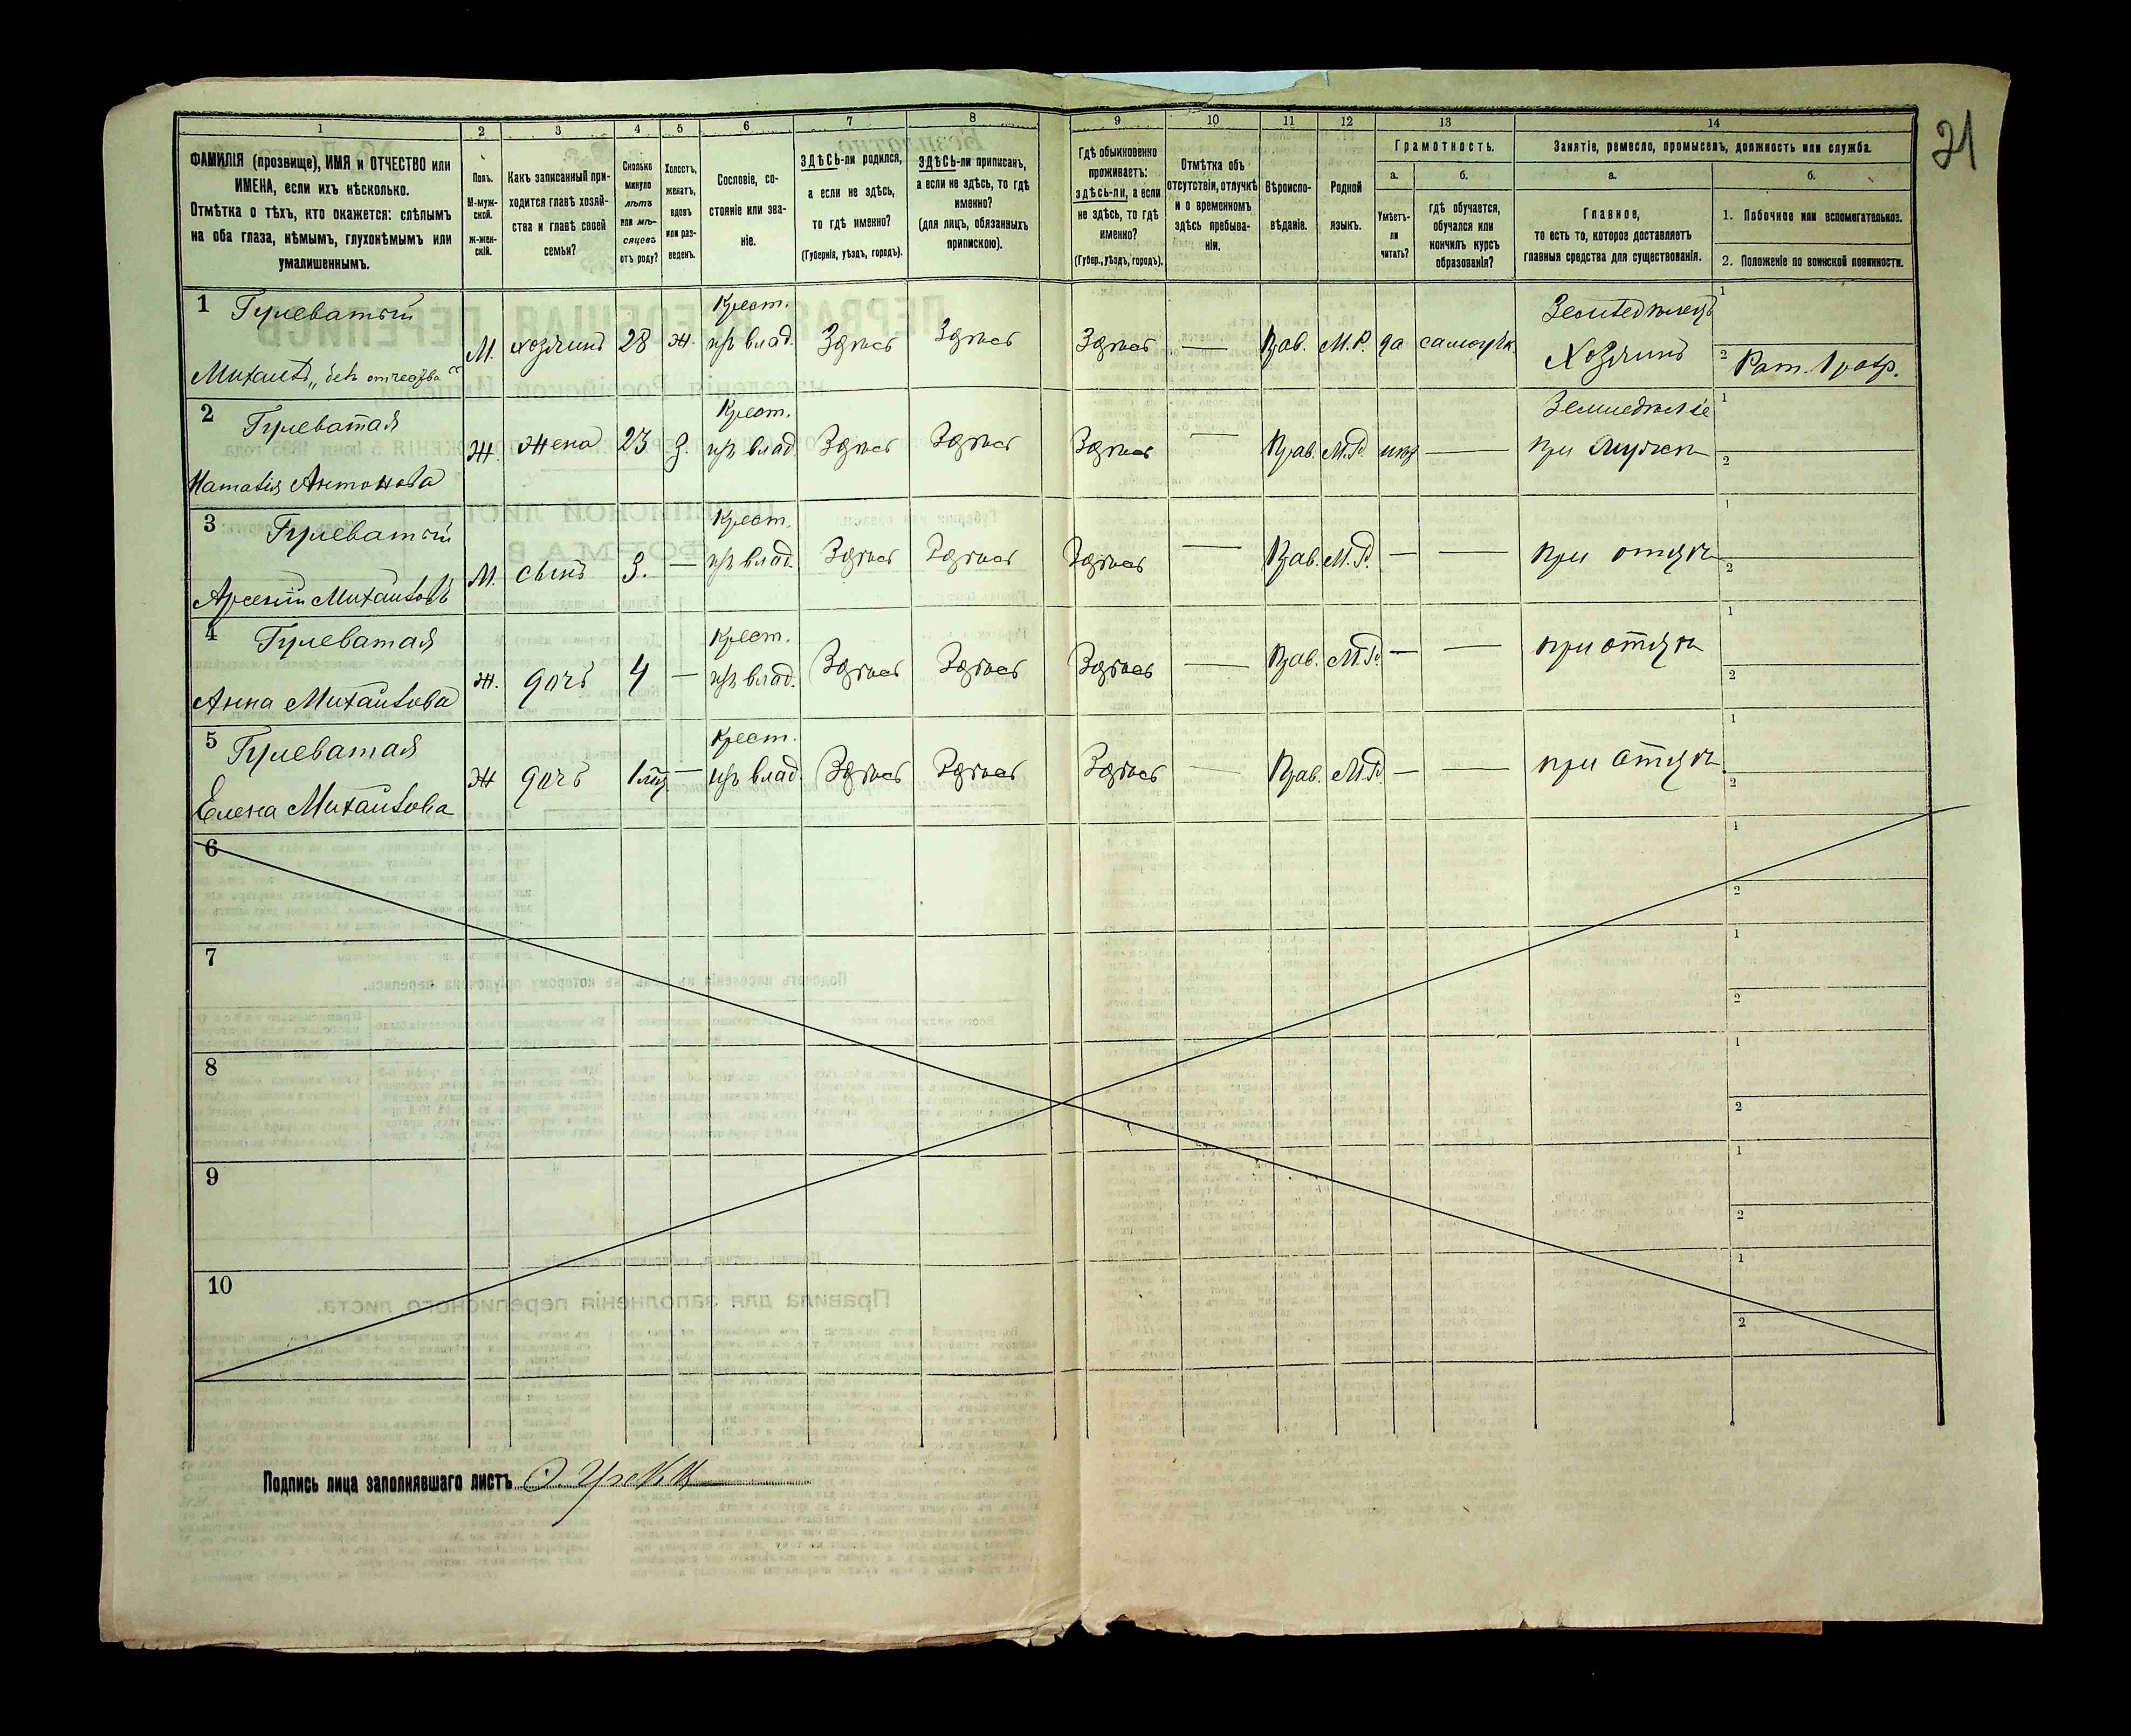 21
1 2 3 4 5 6 7 8 9 10 11 12 13 14
ФАМИЛІЯ (прозвище), ИМЯ и ОТЧЕСТВО или
ИМЕНА, если ихъ нѣсколько.
Отмѣтка о тѣхъ, кто окажется: слѣпымъ
на оба глаза, нѣмымъ, глухонѣмымъ или
умалишеннымъ.
Полъ.
М-муж-
ской.
ж-жен-
скій.
Какъ записанный при-
ходится главѣ хозяй-
ства и главѣ своей
семьи?
Сколько
минуло
лѣтъ
или мѣ-
сяцевъ
отъ роду?
Холостъ,
женатъ,
вдовъ
или раз-
веденъ.
Сословіе, со-
стояніе или зва-
ніе.
ЗДѢСЬ-ли родился,
а если не здѣсь,
то гдѣ именно?
(Губернія, уѣздъ, городъ).
ЗДѢСЬ-ли приписанъ,
а если не здѣсь, то гдѣ
именно?
(для лицъ, обязанныхъ
припискою).
Гдѣ обыкновенно
проживаетъ:
здѣсь-ли, а если
не здѣсь, то гдѣ
именно?
(Губер., уѣздъ, городъ).
Отмѣтка объ
отсутствіи, отлучкѣ
и о временномъ
здѣсь пребыва-
ніи.
Вѣроиспо-
вѣданіе.
Родной
языкъ.
Грамотность.
а.
Умѣетъ-
ли
читать?
б.
гдѣ обучается,
обучался или
кончилъ курсъ
образованія?
Занятіе, ремесло, промыселъ, должность или служба.
а.
Главное,
то есть то, которое доставляетъ
главныя средства для существованія.
б.
1. Побочное или вспомогательное.
2. Положеніе по воинской повинности.
1 Гулеватый
Михаилъ „безъ отчества“
М. хозяинъ 28 ж. Крест.
изъ влад. Здѣсь Здѣсь Здѣсь — Прав. М.Р. да самоучк. Земледѣлецъ
Хозяинъ
1
2 Рат. 1 разр.
2 Гулеватая
Наталія Антонова
Ж. Жена 23 З. Крест.
изъ влад. Здѣсь Здѣсь Здѣсь — Прав. М.Р. нѣтъ — Земледѣліе
при мужѣ
1
2
3 Гулеватый
Арсеній Михаиловъ
М. сынъ — Крест.
изъ влад. Здѣсь Здѣсь Здѣсь — Прав. М.Р. — — при отцѣ
1
2
4 Гулеватая
Анна Михаилова
Ж. дочь 4 — Крест.
изъ влад. Здѣсь Здѣсь Здѣсь — Прав. М.Р. — — при отцѣ
1
2
5 Гулеватая
Елена Михаилова
Ж дочь 1 мѣс — Крест.
изъ влад. Здѣсь Здѣсь Здѣсь — Прав. М.Р. — — при отцѣ
1
2
6
1
2
7
1
2
8
1
2
9
1
2
10
1
2
Подпись лица заполнявшаго листъ